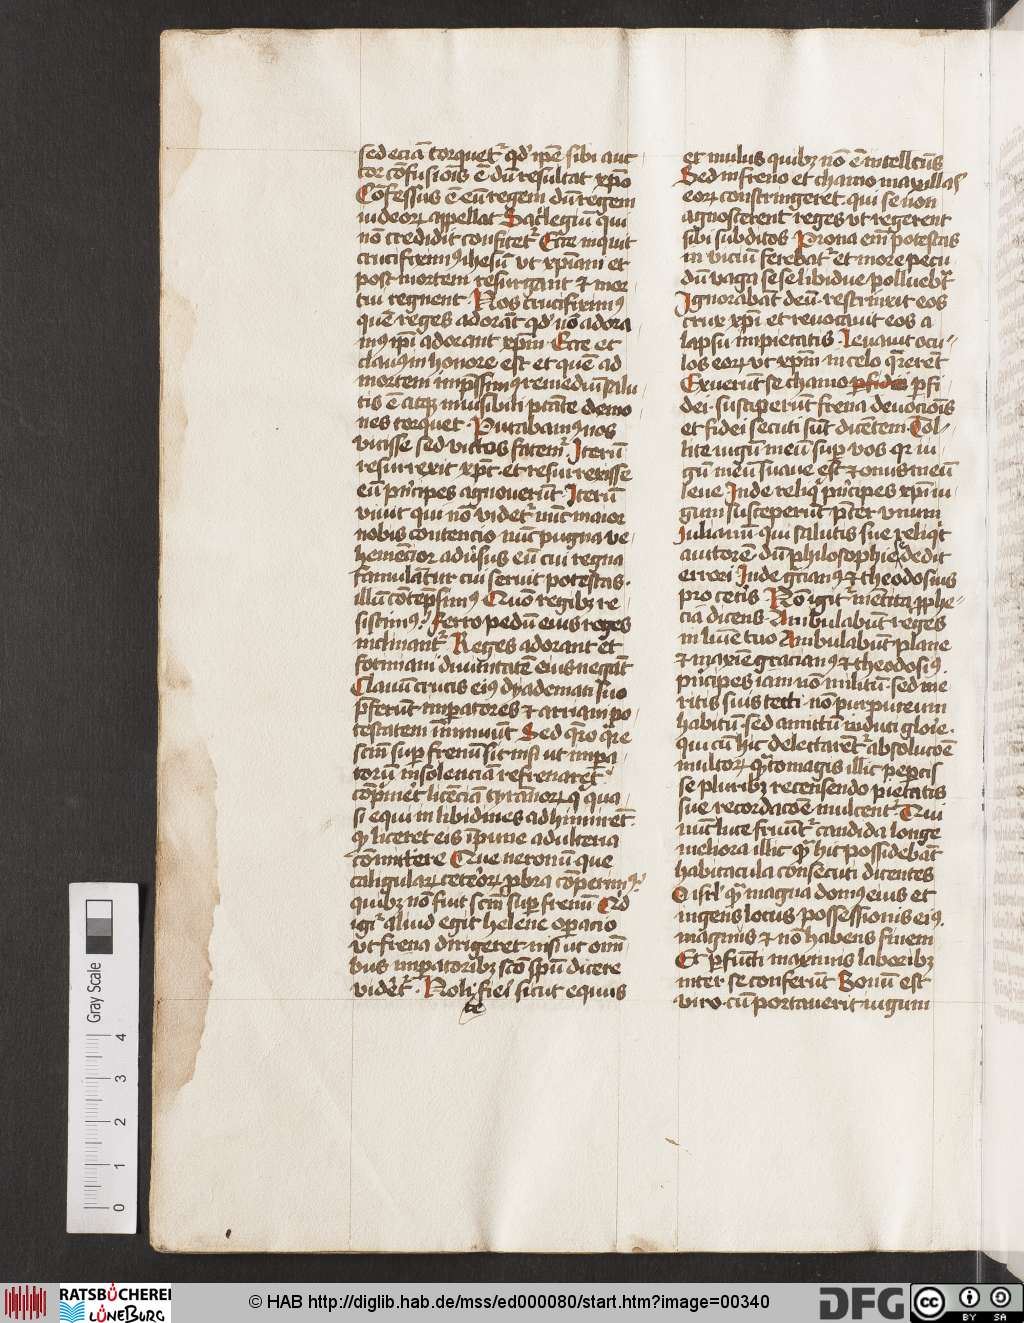 sed eciā torquet᷑ qd' ip̄e sibi auc
tor cōfusiōis ē dū resultat xp̄o
Cōfessus ē eū regem dū regem
iudeoꝝ appellat Sac̓legiū qui
nō credidit confitet᷑ Ecce inquit
crucifixim᷒ ihesū vt xp̄iani et
post mortem resurgant ⁊ mor
tui regnent Nos crucifixim᷒
quē reges adorāt qd' nō adora
m᷒ ip̄i adorant xp̄m Ecce et
clauus in honore est et quē ad
mortem imp̄ssim᷒ remediū salu
tis ē atqꝫ inuisibili ptāte demo
nes torquet Putabam᷒ nos
vicisse sed victos fatem᷑ Iterū
resurrexit xp̄c et resurrexisse
eū p̓ncipes agnouerūt Iterū
viuit qui nō videt᷑ nūc maior
nobis contencio nūc pugna ve
hemēcior adũsus eū cui regna
famulāt᷑ cui seruit potestas
illū cōtēpsim᷒ Quō regibꝫ re
sistim᷒ ferro pedū eius reges
inclinant᷑ Reges adorant et
fotiniani diuinitatē eius negāt
Clauū crucis ei᷒ dyademati suo
p̄ferūt imperatores ⁊ arriani po
testatem īminuūt Sed q̄ro q̄re
scm̄ sup frenū sic nisi ut impa
torū insolenciā refrenaret
cōpⁱmet licēciā tyrānoꝝ qⁱ qua
si equi in libidines adhinniret
qꝫ liceret eis īpune adulteria
cōmittere Que neronū que
caligulaꝝ ceteⁱoꝝ ꝓbra cōperim᷒
quibꝫ nō fuit scm̄ sup frenū Qⁱd
igr᷑ aliud egit helene opacio
vt frena dirigeret nisi ut om̄i
bus impatoribꝫ sc̄o sp̄u dicere
videt᷑ Noli fiei sicut equus
te
et mulus quibꝫ nō ē intellc̄us
Sed in freno et chamo maxillas
eoꝝ constringeret qui se non
agnoscerent reges vt regerent
sibi subditos Prona em̄ potestas
in viciū ferebat᷑ et more pecu
dū vaga sese libidine polluebt᷑
Ignorabāt deū restrinxit eos
crux xp̄i et reuocauit eos a
lapsu impietatis Leuauit ocu
los eoꝝ vt xp̄m in celo q̄rerēt
Exuerūt se chamo pfidei pfi
dei susceperūt frena deuocōis
et fidei secuti sūt dicētem Tol
lite iugū meū sup vos qr iu
gū meū suaue est ⁊ onus meū
leue Inde reliqⁱ p̓ncipes xp̄i iu
gum susceperūt p̄ter vnum
Iulianū qui salutis sue reliqⁱt
auctorē dū philosophie se dedit
errori Inde gcian᷒ ⁊ theodosius
pro cetis Nō igit᷑ mētita ꝓphe
cia dicens Ambulabūt reges
in lumē tuo Ambulabūt plane
⁊ maxīe gracian᷒ ⁊ theodosi᷒
p̓ncipes iam nō militū sed me
ritis suis tecti nō purpureum
habitū sed amittū induti gl̓oie
qui cū hic delectarēt᷑ absolucōē
multoꝝ qⁿtomagis illic peꝑcis
se pluribꝫ recensendo pietatis
sue recordacōe mulcent᷑ Qui
nūc luce fruūt᷑ candida longe
meliora illic qꝫ hic possidebāt
habitacula consecuti dicentes
O isrl̓ qꝫ magna dom᷒ eius et
ingens locus possessionis ei᷒
magnus ⁊ nō habens finem
Et p̄fūcti maximis laboribꝫ
inter se conferūt Bonū est
viro cū portauerit iugum
Gray Scale
4
3
2
1
0
RATSBÜCHEREI
LÜNEBURG
© HAB http://diglib.hab.de/mss/ed000080/start.htm?image=00340
DFG
cc
BY SA